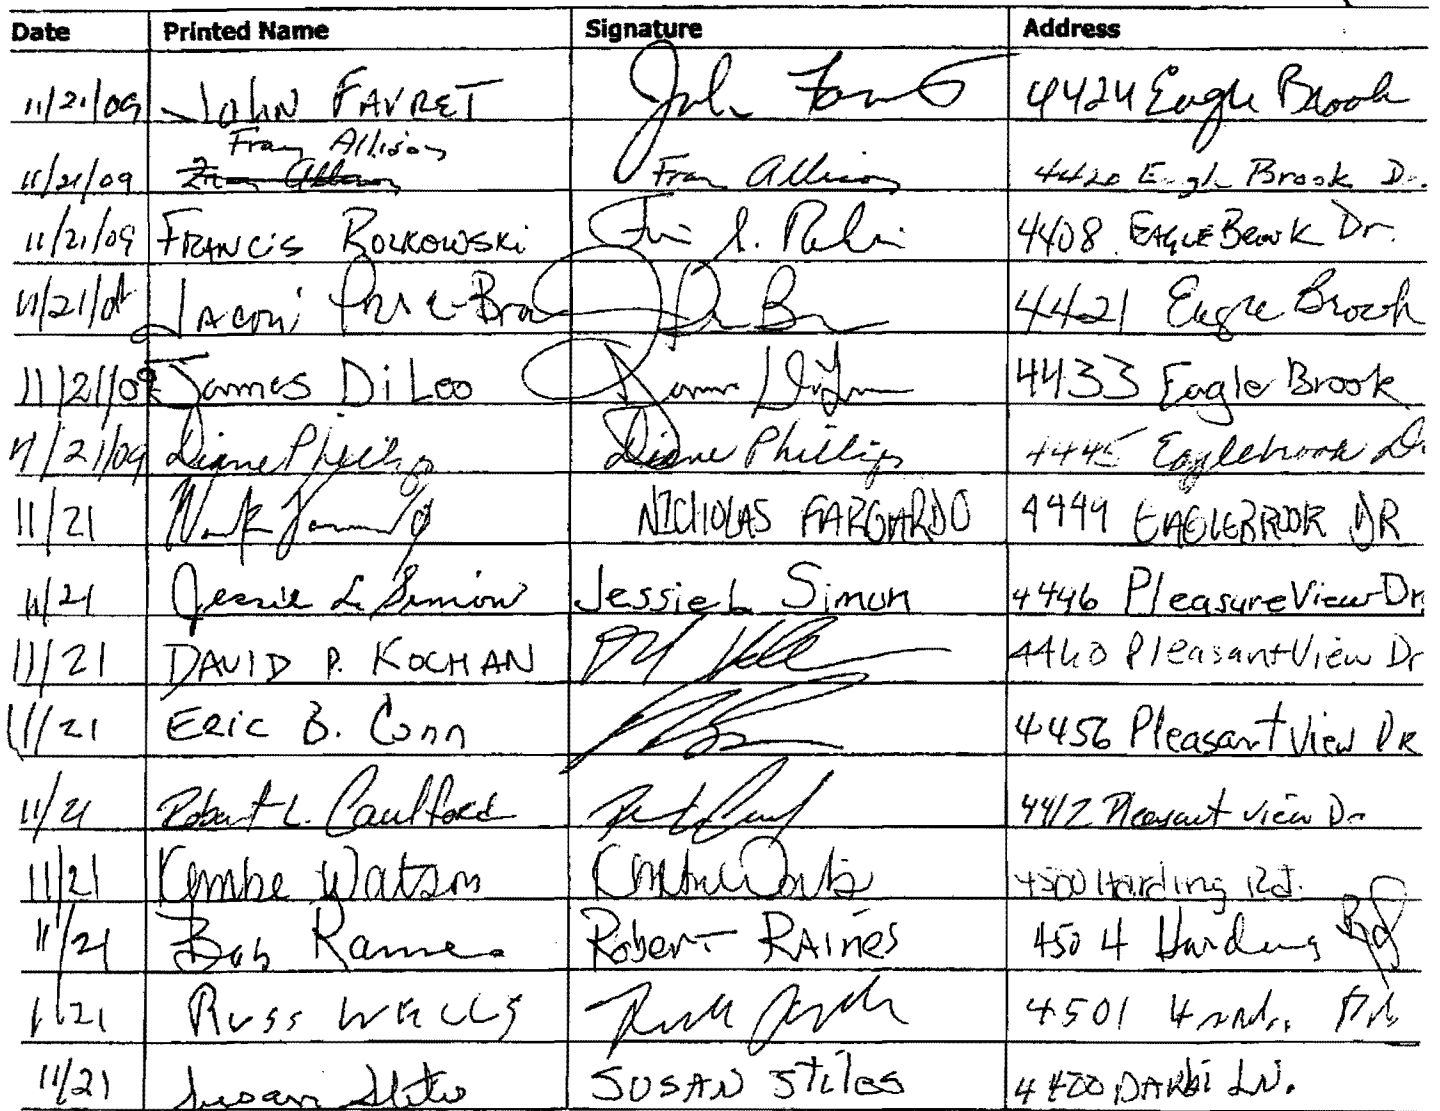 Date Printed Name Signature Address
11/21/09 John FAVRET John Favret 4424 Eagle Brook
Fran Allison
11/21/09 Fran Allison Fran Allison 4420 Eagle Brook Dr.
11/21/09 FRANCIS BORKOWSKI 4408 EAGLE BROOK Dr.
11/21/09 4421 Eagle Brook
11/21/09 James DiLeo James DiLeo 4433 Eagle Brook
11/21/09 Diane Phillips Diane Phillips 4445 Eaglebrook Dr
11/21 NICHOLAS 4449 EAGLEBROOK DR
11/21 Jessie L Simon Jessie L Simon 4446 Pleasure View Dr
11/21 DAVID P. KOCHAN 4460 Pleasant View Dr
11/21 ERIC B. Conn 4456 Pleasant View DR
11/21 Robert L. 4412 Pleasant view Dr
11/21 Watson 4500 Harding Rd.
11/21 Bob Raines Robert RAINES 4504 Harding Rd
11/21 Russ WELLS 4501
11/21 Susan Stiles SUSAN Stiles 4400 DARBI LN.